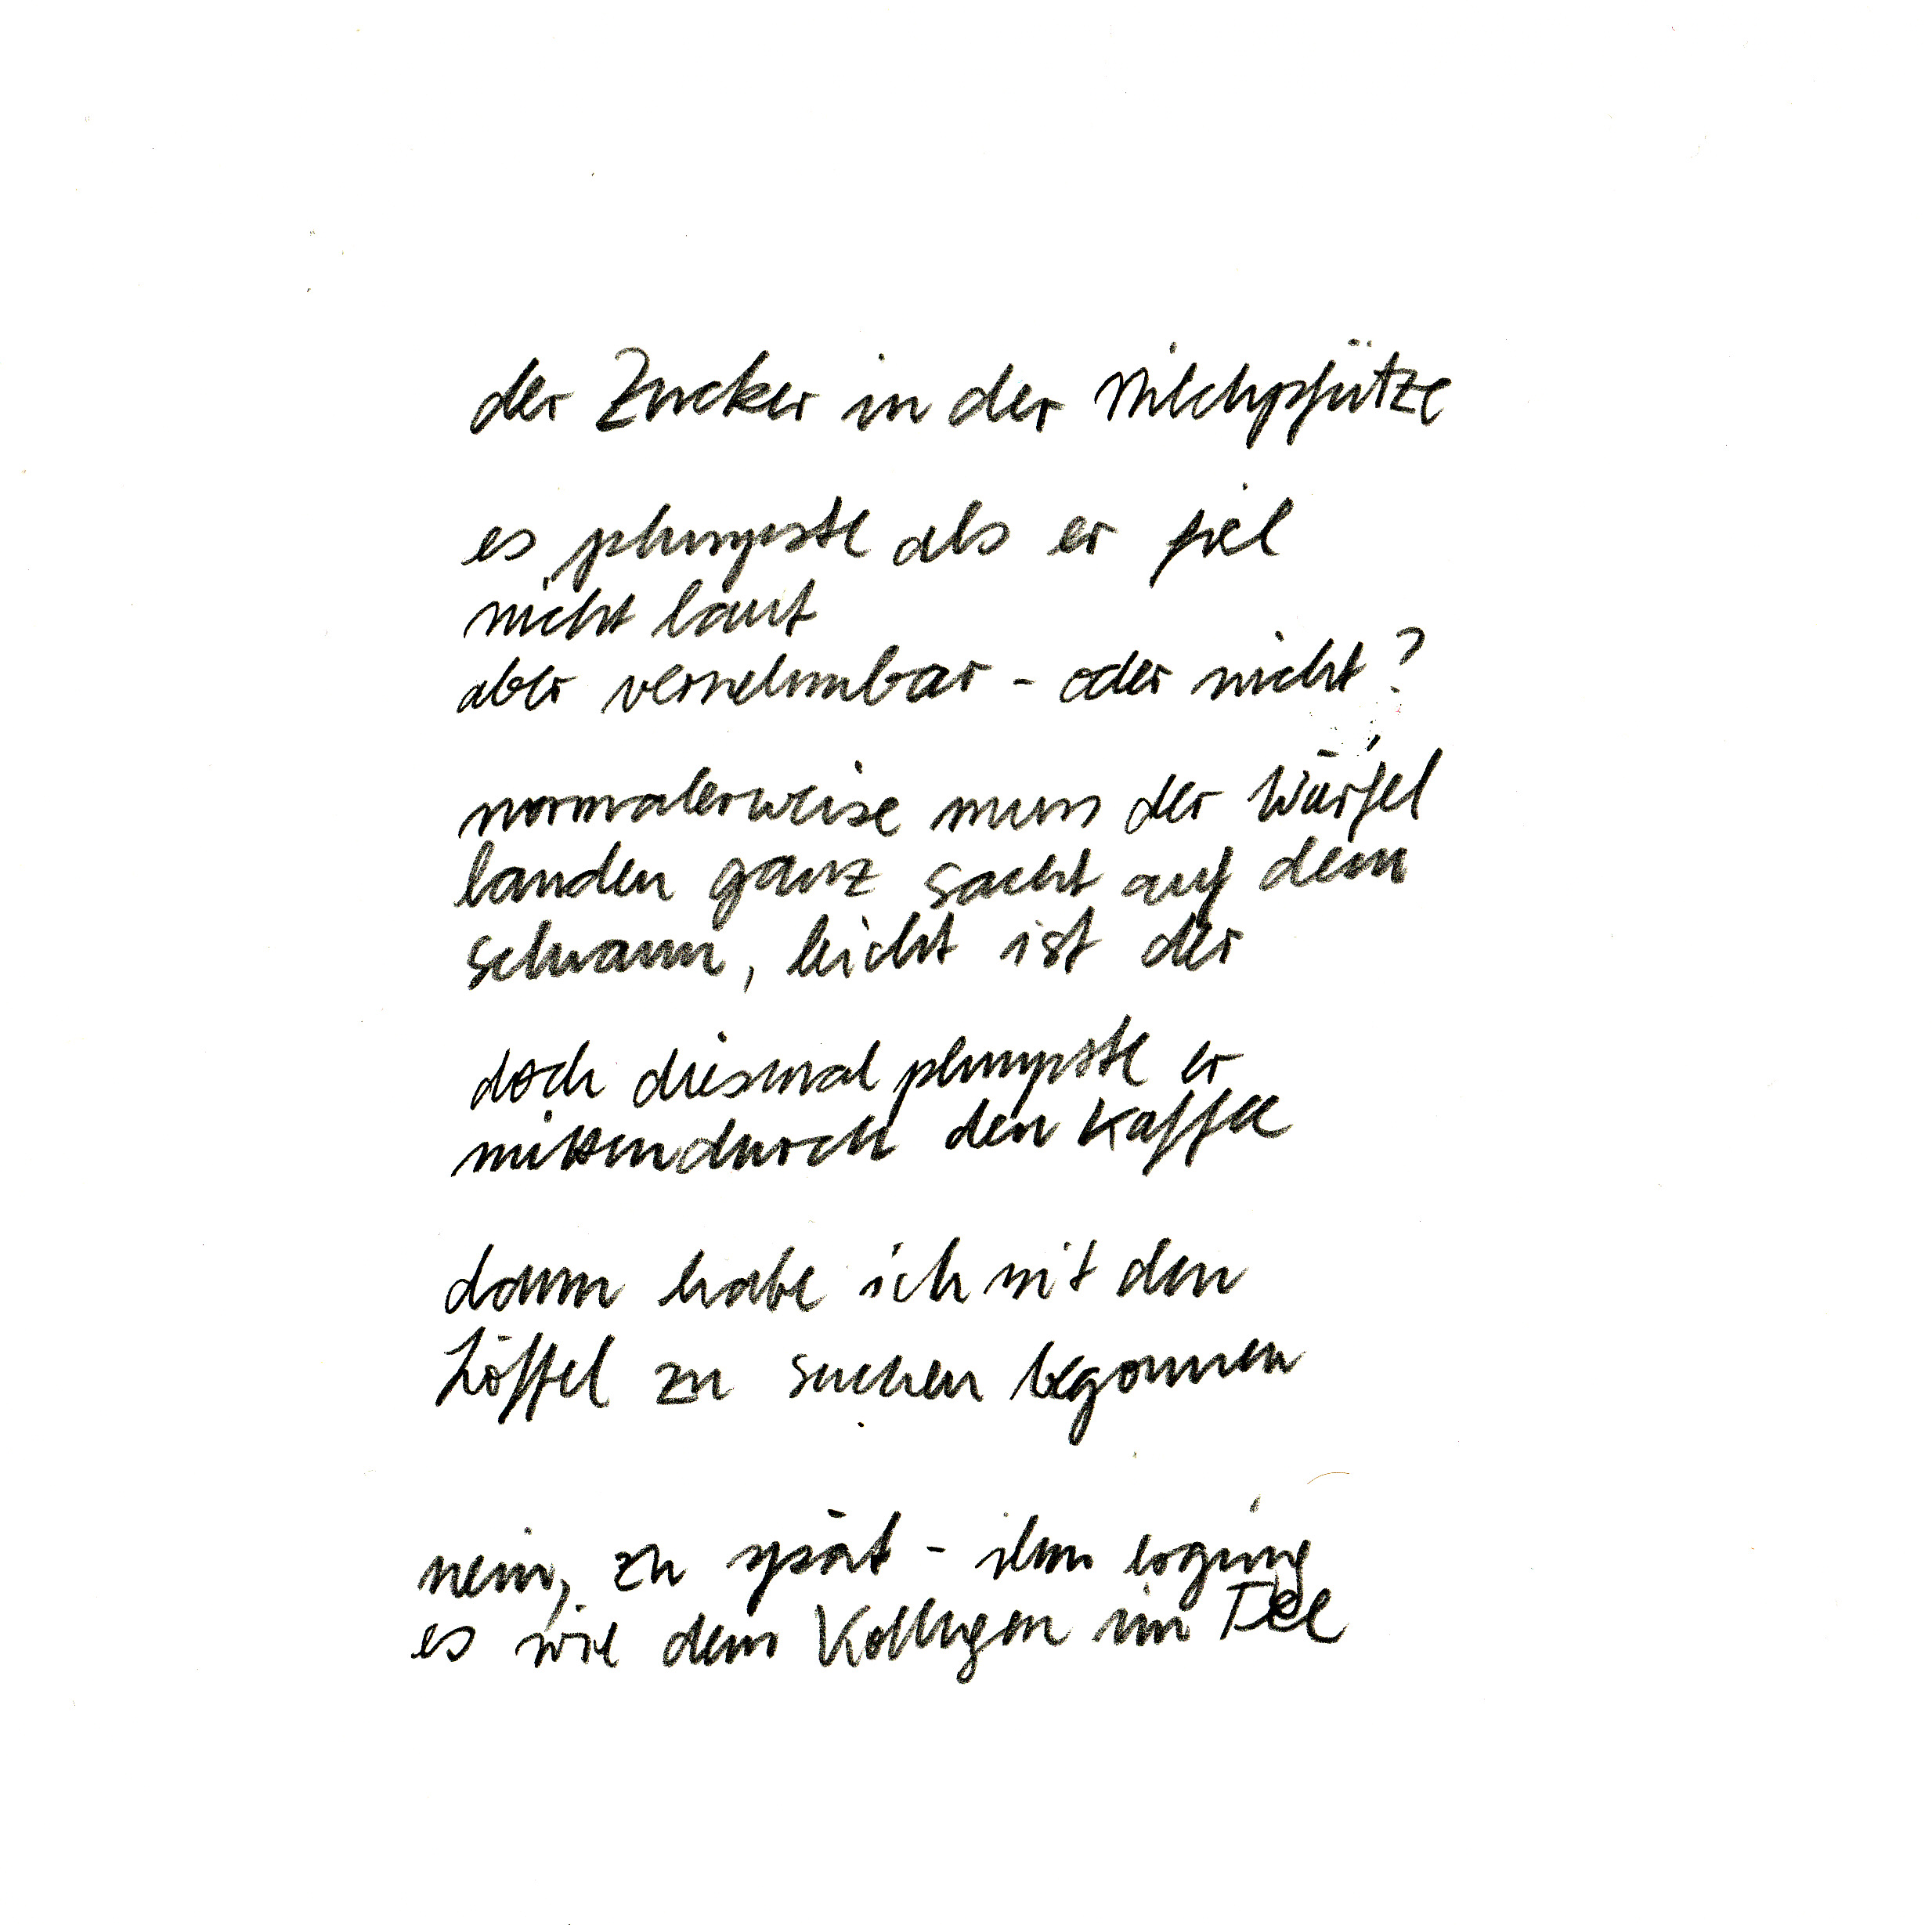 der Zucker in der Milchpfütze
es plumpste als er fiel
nicht laut
aber vernehmbar - oder nicht?
normalerweise muss der Würfel
landen ganz sacht auf dem
schaum, leicht ist der
doch diesmal plumpste er
mittendurch den Kaffee
dann habe ich mit den
Löffel zu suchen begonnen
nein, zu spät - ihm erging
es wie dem Kollegen im Tee